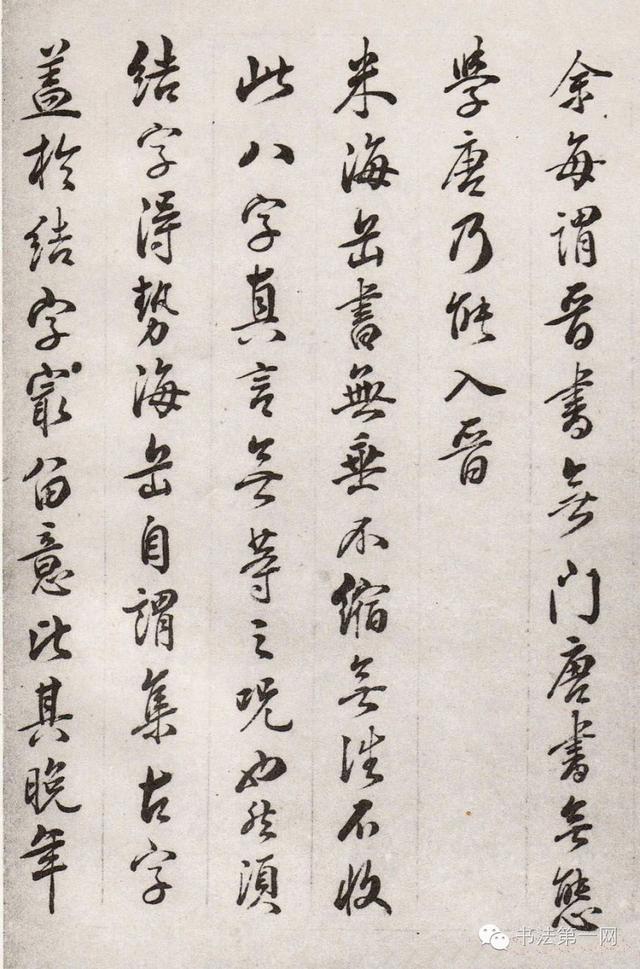 余每謂晉書無門唐書無態
學唐乃能入晉
米海岳書無垂不縮無往不收
此八字真言無等之咒也然須
結字得勢海岳自謂集古字
蓋於結字最留意比其晚年
书法第一网